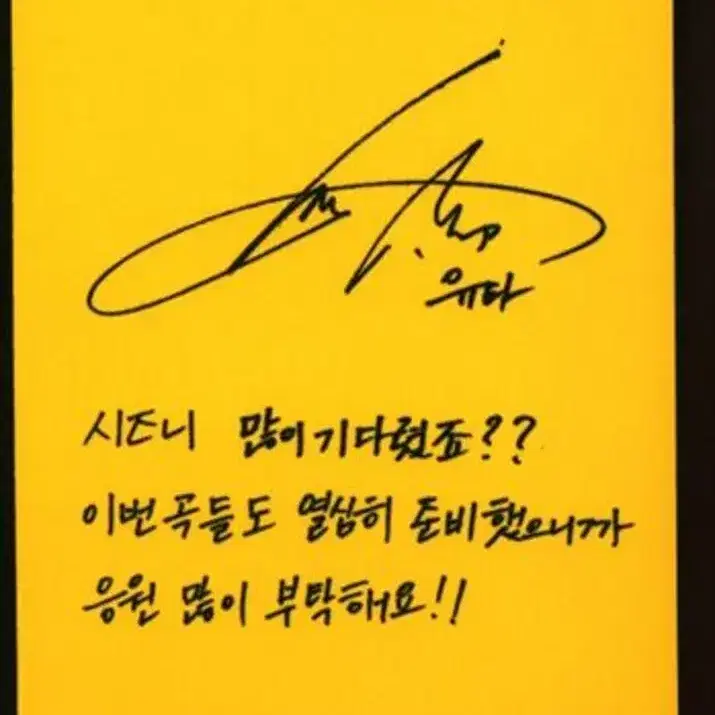 유타
시즈니 많이 기다렸죠??
이번 곡들도 열심히 준비했으니까
응원 많이 부탁해요!!